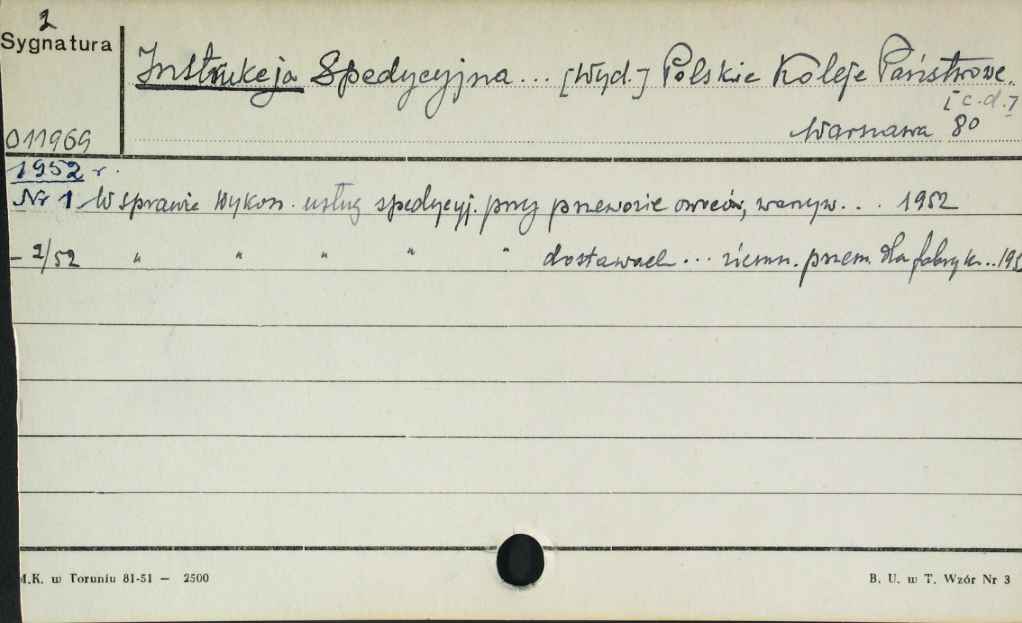 2
Sygnatura
Instrukcja Spedycyjna... [Wyd.] Polskie Koleje Państwowe.
[c.d.]
011969 Warszawa 8°
1952 r.
Nr 1 W sprawie wykon. usług spedycyj. przy przewozie owoców, warzyw... 1952
- 2/52 " " " " " dostawach... ziemn. przem. dla fabryk... 195
M.K. w Toruniu 81-51 — 2500
B. U. w T. Wzór Nr 3